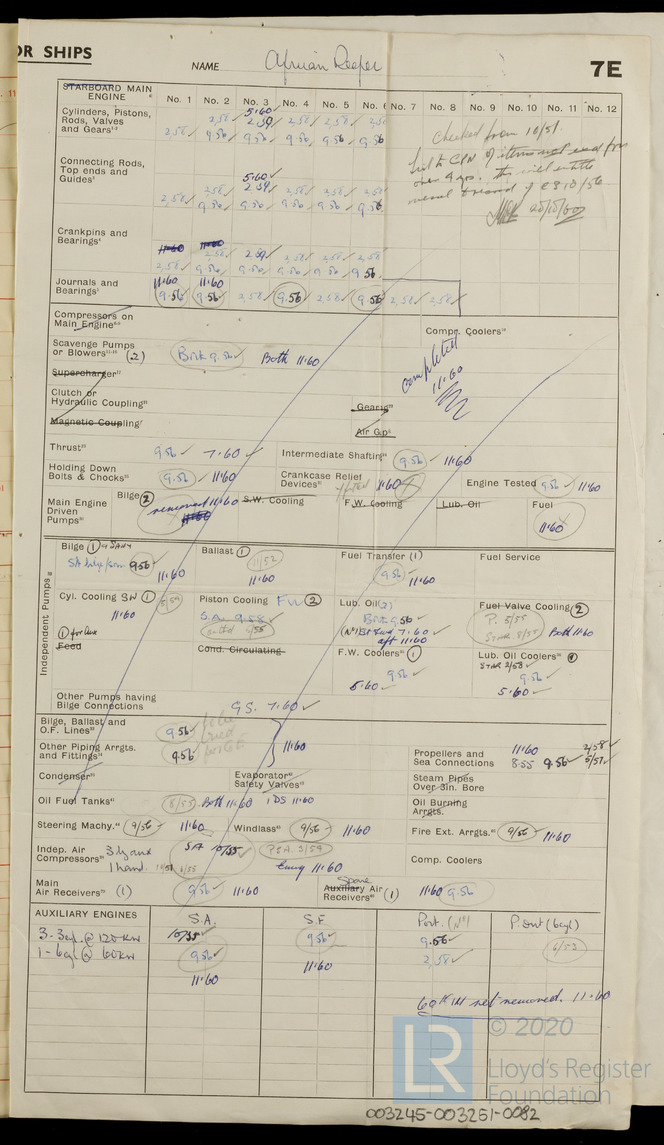 OR SHIPS
NAME African Reefer
7E
STARBOARD MAIN
ENGINE
No. 1 No. 2 No. 3 No. 4 No. 5 No. 6 No. 7 No. 8 No. 9 No. 10 No. 11 No. 12
Cylinders, Pistons,
Rods, Valves
and Gears
5.60
2,58 2.59 2,58 2,58
2,58 9.56 9.56 9.56 9.56 9.56
Checked from 10/51.
Connecting Rods,
Top ends and
Guides
5.60
2,58 2.59 2,58 2,58
2,58 9.56 9.56 9.56 9.56 9.56
Crankpins and
Bearings
11.60 11.60
2,58 2.59 2,58 2,58 2,58
2,58 9.56 9.56 9.56 9.56 9.56
Journals and
Bearings
11.60 11.60
9.56 9.56 2,58 9.56 2,58 9.56 2,58 2,58
Compressors on
Main Engine
Compr. Coolers
Scavenge Pumps
or Blowers (2) Both 9.56 Both 11.60
completed
11.60
Supercharger
Clutch or
Hydraulic Coupling
Gearing
Magnetic Coupling
Air Gap
Thrust 9.56 7.60
Intermediate Shafting 9.56 11.60
Holding Down
Bolts & Chocks 9.56 11.60
Crankcase Relief
Devices 11.60
Engine Tested 9.56 11.60
Main Engine
Driven
Pumps
Bilge 2 removed 11.60
11.60
S.W. Cooling
F.W. Cooling
Lub. Oil
Fuel
11.60
Independent Pumps
Bilge 1
9.56
11.60
Ballast 1
11/52
11.60
Fuel Transfer (1)
9.56 11.60
Fuel Service
Cyl. Cooling SW 1 5/59
11.60
Piston Cooling FW 2
S.A. 9.58
5/55
Lub. Oil (2)
Both 9.56
7.60
aft 11.60
Fuel Valve Cooling 2
P. 5/55
STAR 8/55 Both 11.60
1 for Aux
Feed
Cond. Circulating
F.W. Coolers 1
9.56
5.60
Lub. Oil Coolers
STAR 2/58
9.56
5.60
Other Pumps having
Bilge Connections
G.S. 7.60
Bilge, Ballast and
O.F. Lines 9.56
Other Piping Arrgts.
and Fittings 9.56
11.60
Propellers and
Sea Connections
11.60 2/58
8.55 9.56 5/57
Condenser
Evaporator
Safety Valves
Steam Pipes
Over 3in. Bore
Oil Fuel Tanks 8/55 Both 11.60 1 DS 11.60
Oil Burning
Arrgts.
Steering Machy. 9/56 11.60
Windlass 9/56 11.60
Fire Ext. Arrgts. 9/56 11.60
Indep. Air
Compressors
1 hand.
SA 10/55
6/55
P.S.A. 2/59
Emcy 11.60
Comp. Coolers
Main
Air Receivers (1) 9.56 11.60
Spare
Auxiliary Air
Receivers (1) 11.60 9.56
AUXILIARY ENGINES
S.A. S.F. Port. (No1) P. ont (6cyl)
3-3cyl. @ 120 KW 10/55 9.56 9.56 6/52
1-6cyl @ 60 KW 9.56 2,58
11.60 11.60
60 KW not removed. 11.60
LR
© 2020
Lloyd's Register
Foundation
003245-003251-0082